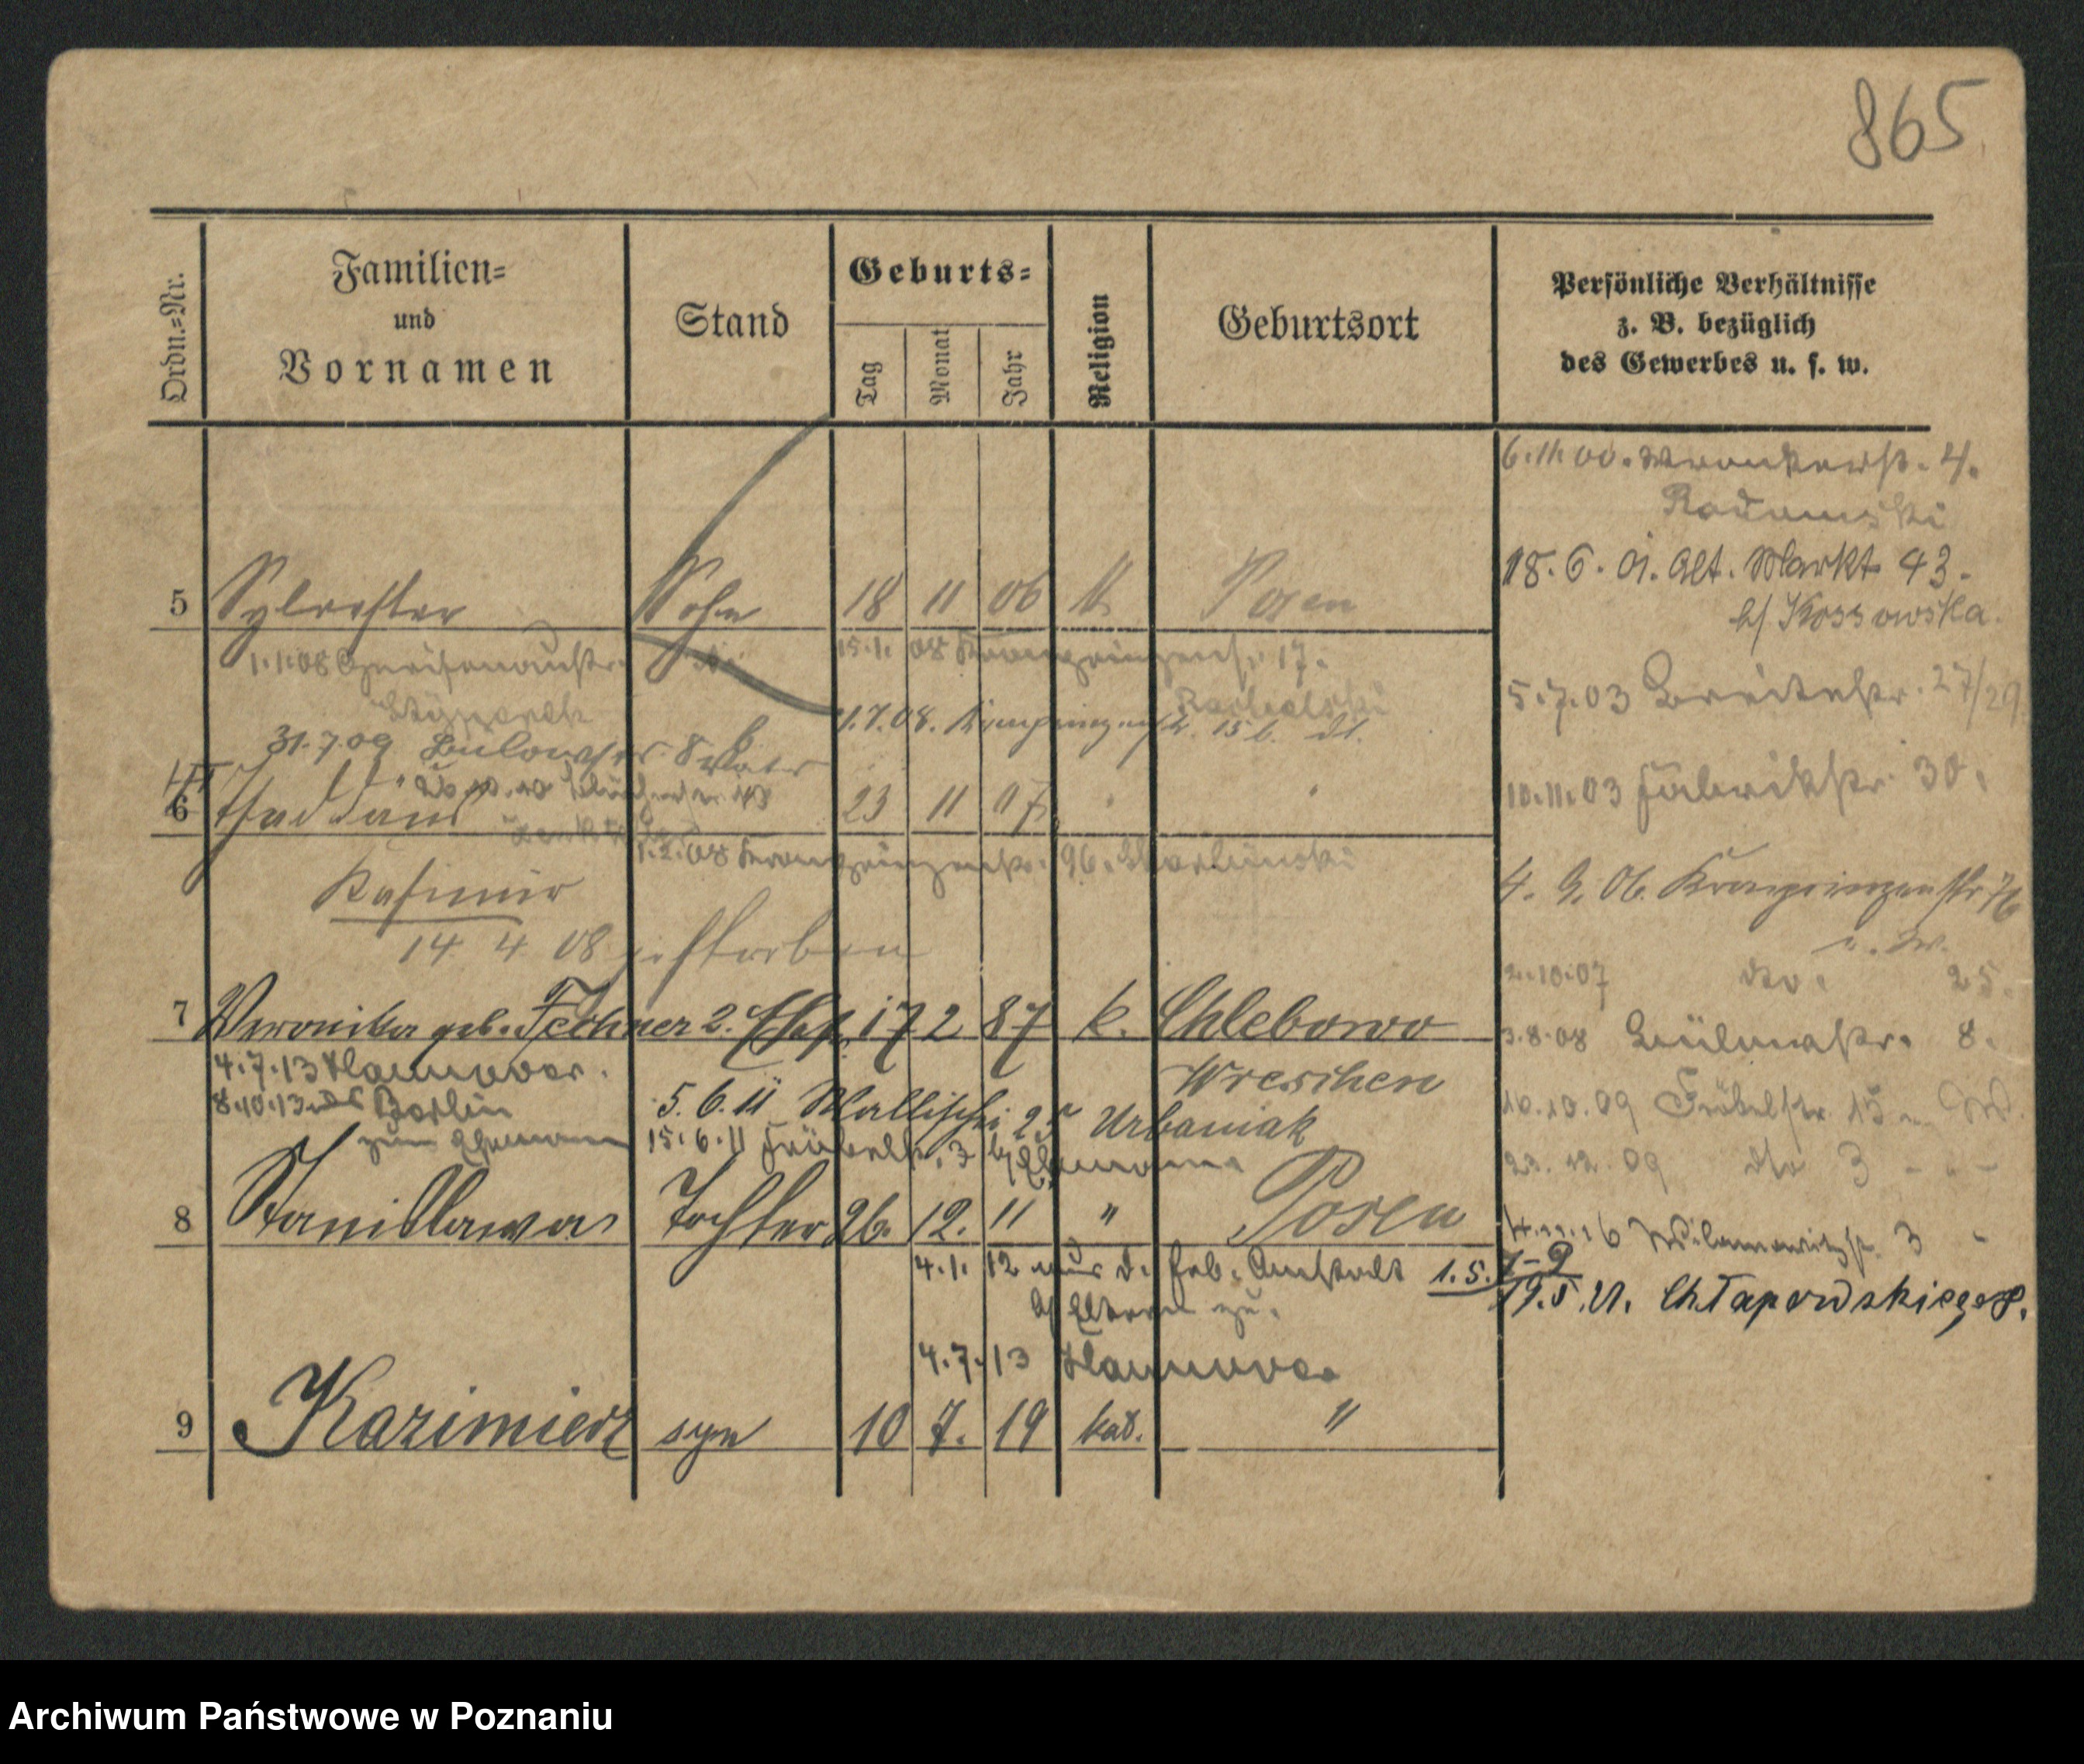 865
Ordn.=Nr.
Familien=
und
Vornamen
Stand
Geburts=
Tag
Monat
Jahr
Religion
Geburtsort
Persönliche Verhältnisse
z. B. bezüglich
des Gewerbes u. s. w.
6.11.00. Wronkerstr. 4.
Radomski
18. 6. 01. Alt. Markt 43.
b/ Kossowska.
5 Sylvester Sohn 18 11 06 k Posen
1.1.08 Gneisenaustr.
15.1. 08 Kronprinzenstr. 17.
5.7.03 Breitestr. 27/29
1.7.08. Kronprinzenstr. 15 b.
31.7.09 Bülowstr. 8
10.11.03 Fabrikstr. 30.
6 Thaddäus 23 11 07 " "
1.2.08 Kronprinzenstr. 96.
Kasimir
4. 9. 06. Kronprinzenstr 76
14 4 08 gestorben
2.10.07 dto. 25.
7 Veronika geb. Fechner 2. Ehefr. 17 2 87 k. Chlebowo
3.8.08 8.
4.7.13 Hannover.
Wreschen
8.10.13 Berlin
zum Ehemann
5.6.11 Wallischei 25 Urbaniak
10.10.09 Fröbelstr. 15
15.6.11 Fröbelstr. 3 b/ Ehemann
23. 12. 09 dto 3
8 Stanislawa Tochter 26. 12. 11 " Posen
Wilamowitzstr. 3
4.1. 12 aus d. Heb. Anstalt
b/ Eltern zu.
1.5.
7-9
19.5.21. Chłapowskiego 8.
4.7.13 Hannover
9 Kazimierz syn 10 7. 19 kat. "
Archiwum Państwowe w Poznaniu